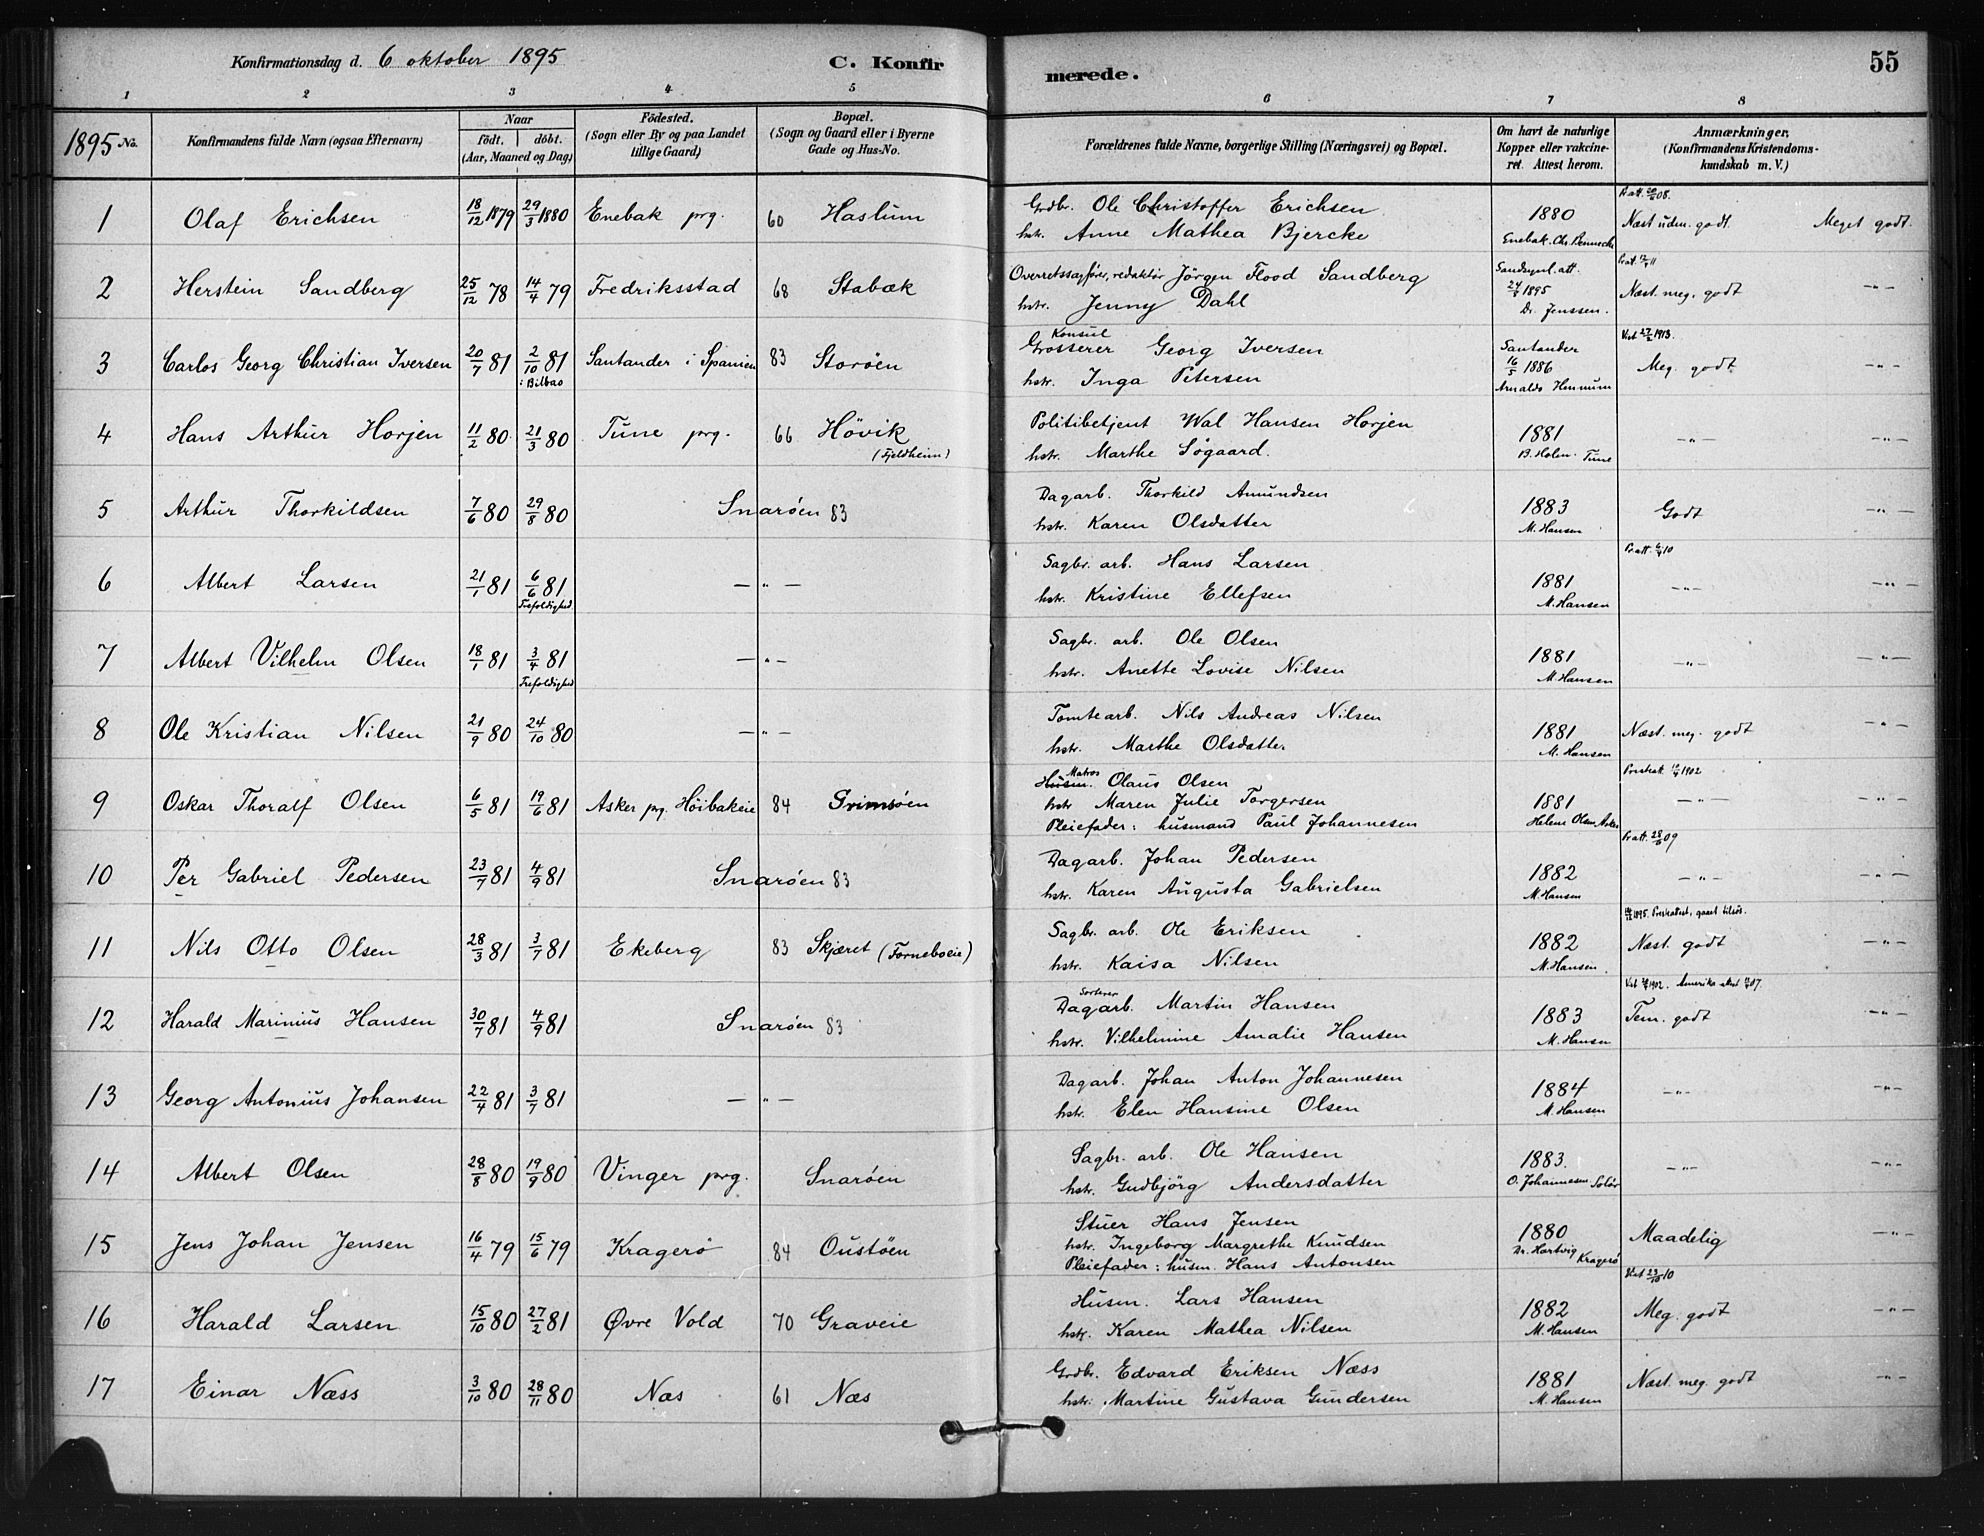 Konfirmationsdag d. 6 oktober 1895 C. Konfir merede. 55
1 2 3 4 5 6 7 8
1895 No. Konfirmandens fulde Navn (ogsaa Efternavn) Naar födt. döbt. (Aar, Maaned og Dag) Födested. (Sogn eller By og paa Landet tillige Gaard) Bopæl. (Sogn og Gaard eller i Byerne Gade og Hus-No. Forældrenes fulde Navne, borgerlige Stilling (Næringsvei) og Bopæl. Om havt de naturlige Kopper eller vakcineret. Attest herom. Anmærkninger, (Konfirmandens Kristendomskundskab m. V.)
1 Olaf Erichsen 18/12 1879 29/3 1880 Enebak prg. 60 Haslum
Grdbr. Ole Christoffer Erichsen
hstr. Anne Mathea Bjercke
1880 Enebak. Chr. Bennecke
Pr att. 20/6 08.
Næst uden. godt. Meget godt.
2 Herstein Sandberg 25/12 78 14/4 79 Fredriksstad 68 Stabæk
Overretssagfører, redaktør Jörgen Flood Sandberg
hstr. Jenny Dahl
Sandsynl. att. 24/9 1895 Dr. Jenssen.
Næst. meg. godt —„—
3 Carlos Georg Christian Iversen 20/7 81 2/10 81 i Bilbao Santander i Spanien 83 Storöen
Konsul
Grosserer Georg Iversen
hstr. Inga Petersen
Santander 16/5 1886 Arnalds Hennum
Vist 27/2 1913.
Meg. godt —„—
4 Hans Arthur Horjen 11/2 80. 21/3 80 Tune prg. 66 Hövik (Fjeldheim)
Politibetjent Wal Hansen Horjen
hstr. Marthe Sögaard.
1881 B. Holm. Tune
—„— —„—
5 Arthur Thorkildsen 7/6 80 29/8 80 Snaröen 83
Dagarb. Thorkild Amundsen
hstr. Karen Olsdatter
1883 M. Hansen
Godt —„—
6 Albert Larsen 21/1 81 6/6 81 Trefoldighed —„—
Sagbr. arb. Hans Larsen
hstr. Kristine Ellefsen
1881 M. Hansen
—„— —„—
7 Albert Vilhelm Olsen 18/1 81 3/4 81 Trefoldighed —„—
Sagbr. arb. Ole Olsen
hstr. Anette Lovise Nilsen
1881 M. Hansen
—„— —„—
8 Ole Kristian Nilsen 21/9 80 24/10 80 —„—
Tomtearb. Nils Andreas Nilsen
hstr. Marthe Olsdatter
1881 M. Hansen
Næst. meg. godt —„—
9 Oskar Thoralf Olsen 6/5 81 19/6 81 Asker prg. Höibakeie 84 Grimsöen
Matros
Husm. Olaus Olsen
hstr Maren Julie Torgersen
Pleiefader: husmand Paul Johannesen
1881 Helene Olsen Asker
—„— —„—
10 Per Gabriel Pedersen 23/7 81 4/9 81 Snaröen 83
Dagarb. Johan Pedersen
hstr. Karen Augusta Gabrielsen
1882 M. Hansen
Pr att. 28/6 09
—„— —„—
11 Nils Otto Olsen 28/3 81 3/7 81 Ekeberg 83 Skjæret (Forneboeie)
Sagbr. arb. Ole Eriksen
hstr. Kaisa Nilsen
1882 M. Hansen.
1895. Prestattest, gaaet tilsös.
Næst. godt —„—
12 Harald Marinius Hansen 30/7 81 4/9 81 Snaröen 83
Sorterer
Dagarb. Martin Hansen
hstr. Vilhelmine Amalie Hansen
1883 M. Hansen
Tem. godt —„—
13 Georg Antonius Johansen 22/4 81 3/7 81 —„—
Dagarb. Johan Anton Johannesen
hstr. Elen Hansine Olsen
1884 M. Hansen
—„— —„—
14 Albert Olsen 28/8 80 19/9 80 Vinger prg. Snaröen
Sagbr. arb. Ole Hansen
hstr. Gudbjörg Andersdatter
1883. O. Johannesen Solör
—„— —„—
15 Jens Johan Jensen 16/4 79 15/6 79 Kragerö 84 Oustöen
Stuer Hans Jensen
hstr. Ingeborg Margrethe Knudsen
Pleiefader: husm. Hans Antonsen
1880 Dr. Hartvig Kragerö
Maadelig —„—
16 Harald Larsen 15/10 80 27/2 81 Øvre Vold 70 Graveie
Husm. Lars Hansen
hstr. Karen Mathea Nilsen
1882 M. Hansen
Vist 23/10 10
Meg. godt —„—
17 Einar Næss 3/10 80 28/11 80 Næs 61 Næs
Grdbr. Edvard Eriksen Næss
hstr. Martine Gustava Gundersen
1881 M. Hansen
Næst. meg. godt —„—